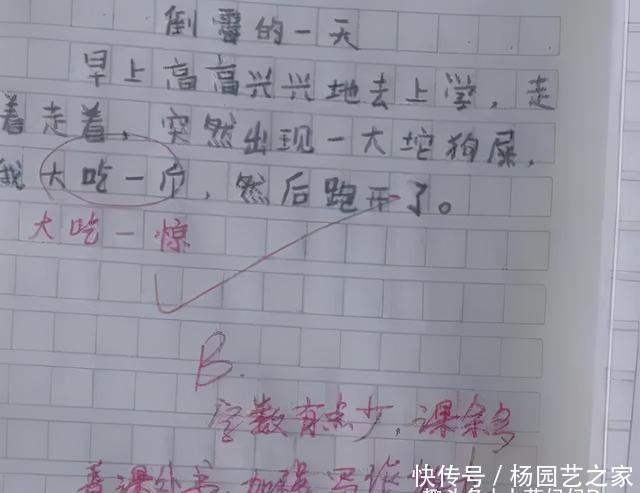 倒霉的一天
早上高高兴兴地去上学，走
着走着，突然出现一大坨狗屎，
我大吃一斤，然后跑开了。
大吃一惊
B.
字数有点少，课余多
看课外书，加强写作
快传号／杨园艺之家